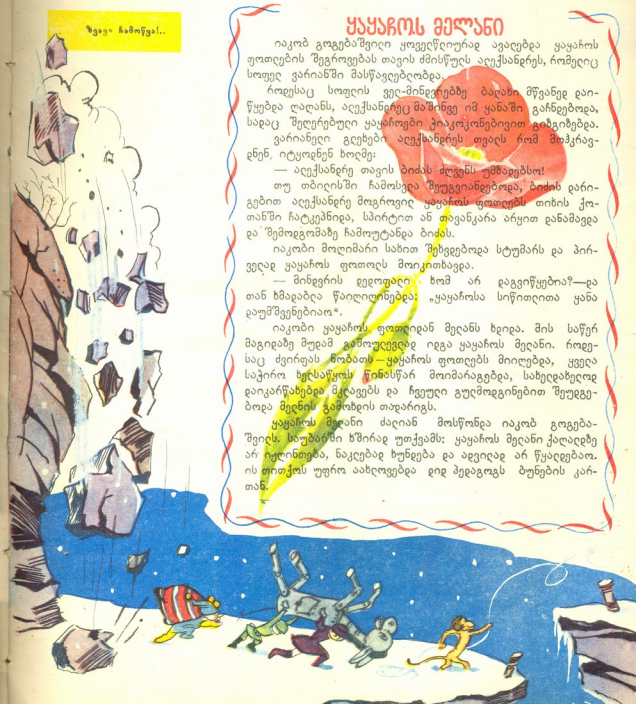 ზვავი ჩამოწვა!..
ყაყაჩოს მელანი
იაკობ გოგებაშვილი ყოველწლიურად ავალებდა ყაყაჩოს
ფოთლების შეგროვებას თავის ძმისწულს ალექსანდრეს, რომელიც
სოფელ ვარიანში მასწავლებლობდა.
როდესაც სოფლის ველ-მინდვრებზე ბალახი მწვანედ დაი-
წყებდა ღაღანს, ალექსანდრეც მაშინვე იმ ყანაში გაჩნდებოდა,
სადაც შეღერებული ყაყაჩოები ჭიაკოკონებივით გიზგიზებდა.
ვარიანელი გლეხები ალექსანდრეს თვალს რომ მოჰკრავ-
დნენ, იტყოდნენ ხოლმე:
— ალექსანდრე თავის ბიძას ძღვენს უმზადებსო!
თუ თბილისში ჩამოსვლა შეუგვიანდებოდა, ბიძის დარი-
გებით ალექსანდრე მოგროვილ ყაყაჩოს ფოთლებს თიხის ქო-
თანში ჩატკეპნიდა, სპირტით ან თავანკარა არყით დანამავდა
და შემოდგომაზე ჩამოუტანდა ბიძას.
იაკობი მოღიმარი სახით შეხვდებოდა სტუმარს და პირ-
ველად ყაყაჩოს ფოთოლს მოიკითხავდა.
— მინდვრის დედოფალი ხომ არ დაგვიწყებია?—და
თან ხმადაბლა წაიღიღინებდა: „ყაყაჩოსა სიწითლითა ყანა
დაუმშვენებიაო“.
იაკობი ყაყაჩოს ფოთლიდან მელანს ხდიდა. მის საწერ
მაგიდაზე მუდამ გამოულევლად იდგა ყაყაჩოს მელანი. როდე-
საც ძვირფას ნობათს—ყაყაჩოს ფოთლებს მიიღებდა, ყველა
საჭირო ხელსაწყოს წინასწარ მოიმარაგებდა, სახელდახელოდ
დაიკარწახებდა მკლავებს და ჩვეული გულმოდგინებით შეუდგე-
ბოდა მელნის გამოხდის თადარიგს.
ყაყაჩოს მელანი ძალიან მოსწონდა იაკობ გოგება-
შვილს. საუბარში ხშირად უთქვამს: ყაყაჩოს მელანი ქაღალდზე
არ იჟღინთება, ნაკლებად ხუნდება და ადვილად არ წყალდებაო.
ის თითქოს უფრო აახლოვებდა დიდ პედაგოგს ბუნების კარ-
თან.